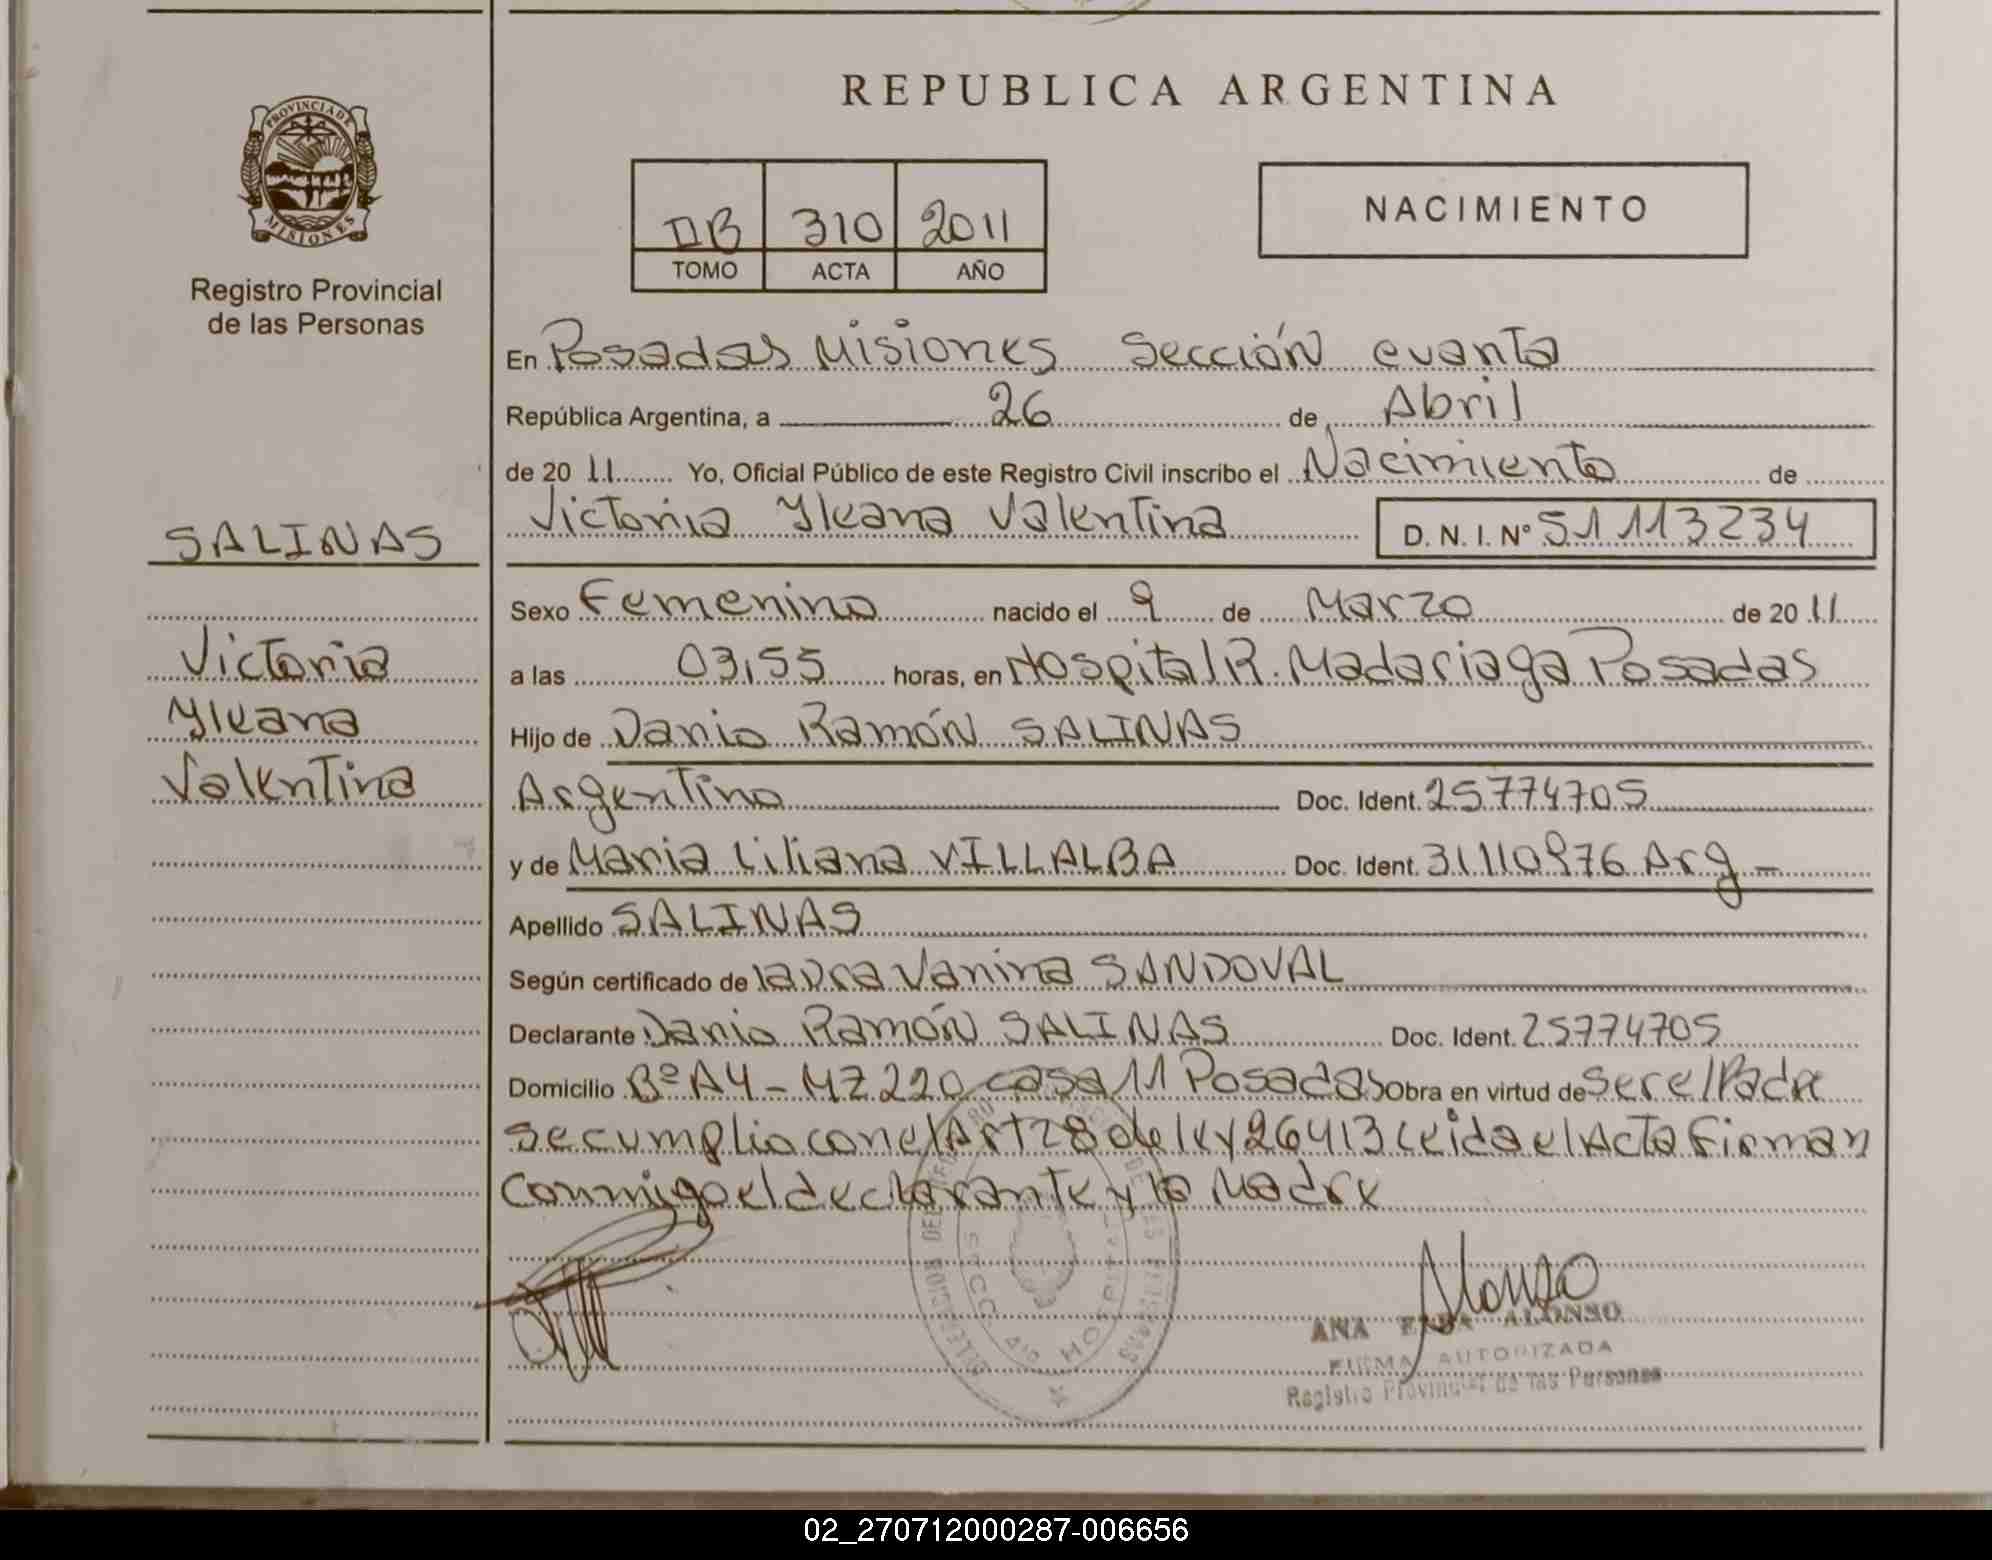 REPUBLICA ARGENTINA
PROVINCIA DE
MISIONES
Registro Provincial
de las Personas
DB 310 2011
TOMO ACTA AÑO
NACIMIENTO
En Posadas Misiones Sección cuarta
República Argentina, a 26 de Abril
de 20 11 Yo, Oficial Público de este Registro Civil inscribo el Nacimiento de
Victoria Yleana Valentina D. N. I. Nº 51113234
SALINAS
Victoria
Yleana
Valentina
Sexo Femenino nacido el 9 de Marzo de 20 11
a las 03,55 horas, en Hospital R. Madariaga Posadas
Hijo de Dario Ramón SALINAS
Argentino Doc. Ident. 25774705
y de Maria Liliana VILLALBA Doc. Ident. 31110976 Arg -
Apellido SALINAS
Según certificado de laura Vanina SANDOVAL
Declarante Dario Ramón SALINAS Doc. Ident. 25774705
Domicilio Bº A4 - MZ 220 casa 11 Posadas Obra en virtud de ser el Padre
se cumplio con el Art 28 de ley 26413 Leida el Acta Firman
conmigo el declarante y la Madre
Alonso
ANA ALONSO
FIRMA AUTORIZADA
Registro Provincial de las Personas
02_270712000287-006656